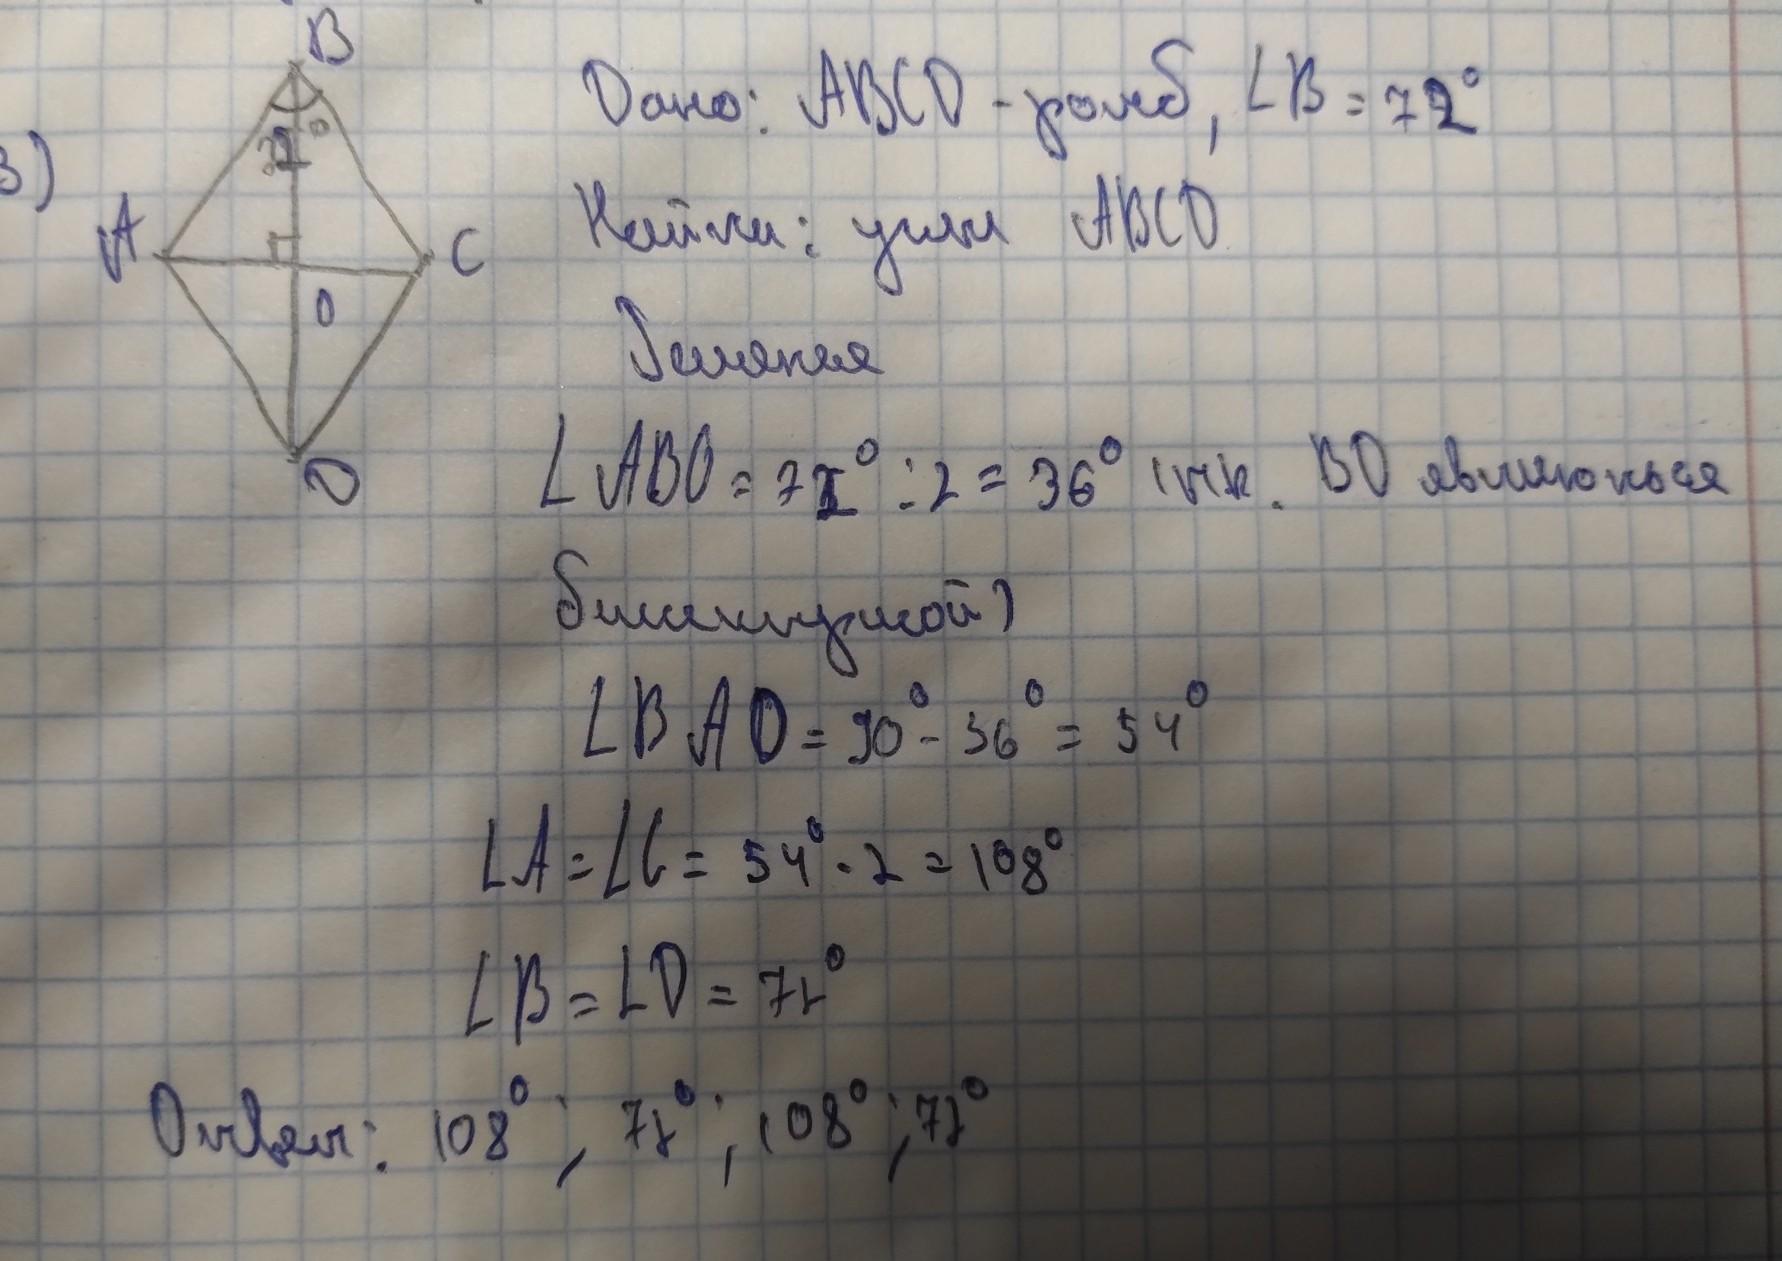 B
Дано: ABCD - ромб, ∠B = 72°
72°
3)
A
C
Найти: углы ABCD
O
Решения
D
∠ABO = 72° : 2 = 36° (т.к. BO являються
биссиктрисой)
∠BAO = 90° - 36° = 54°
∠A = ∠C = 54° · 2 = 108°
∠B = ∠D = 72°
Ответ: 108° ; 72° ; 108° ; 72°